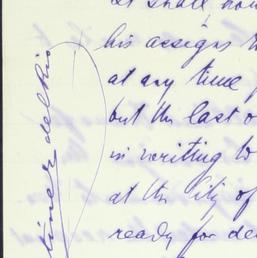 his assigns
at any time
but the last
in writing to
at the city of
ready for de
del Rio